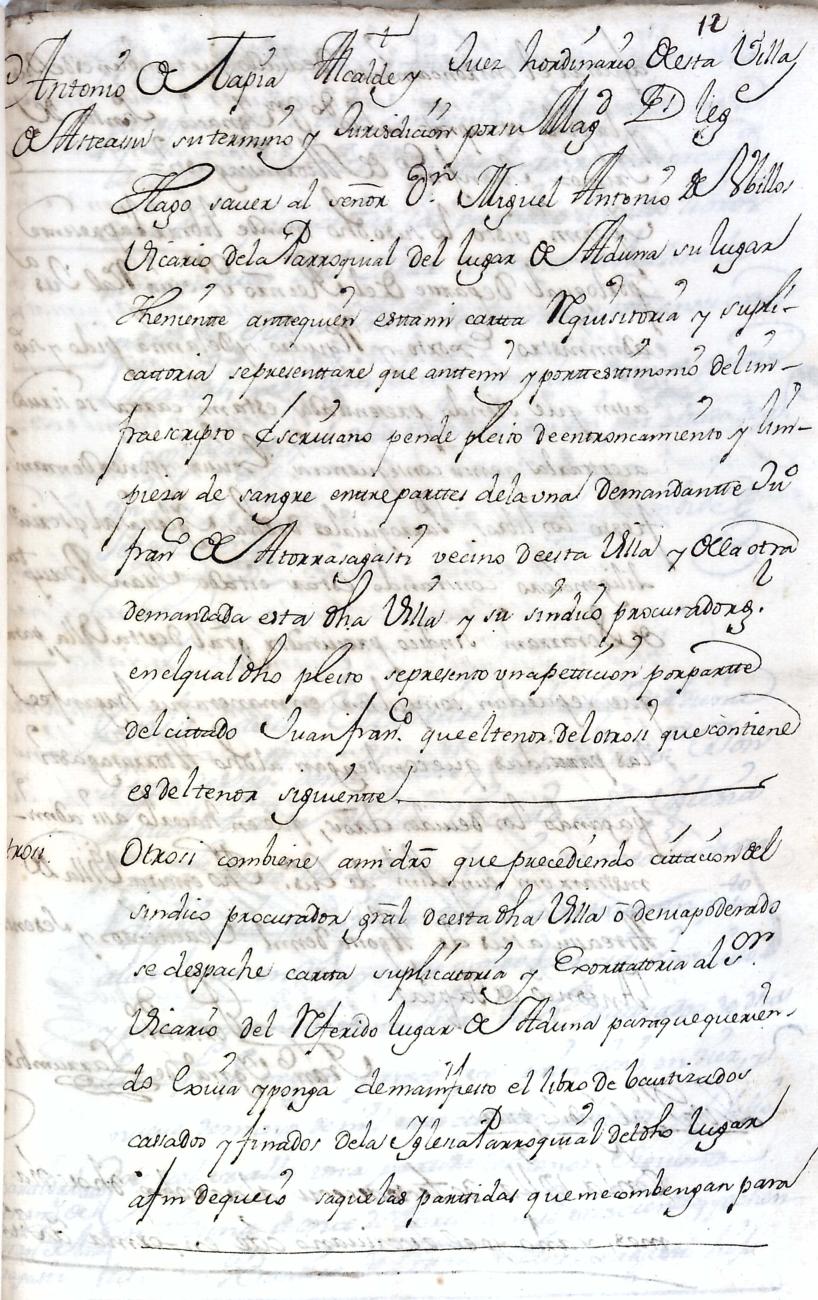 12
Antonio de Tapia Alcalde y Juez hordinario de esta Villa
de Asteasu su termino y Jurisdicion por su Magd
Hago saver al señor Dn. Miguel Antonio de Ubillos
Vicario dela Parroquial del lugar de Aduna su lugar
thenientte anttequien esttami cartta Rquisitoria y supli-
cattoria sepresenttare que anttemi y porttesttimonio delin-
fraescripto Escrivano pende pleito deentroncamiento y lim-
pieza de sangre entreparttes delauna Demandantte Juo
franco de Atorrasagasti vecino deesta Villa y dela otra
demandada esta dha Villa y su sindico procurador
enelqual dho pleito sepresento unapetticion porpartte
delcittado Juan franco. que eltenor delotrosi quecontiene
es deltenor siguientte
trosi. Otrosi combiene amidro que precediendo cittacion del
sindico procurador gral deesta dha Villa o desuapoderado
se despache cartta suplicatoria y Exorttatoria al Sor.
Vicario del Rferido lugar de Aduna paraque querien-
do Exiva yponga demanifiesto el libro de bautizados
cassados y finados dela Iglesia Parroquial deldho lugar
afin dequeio saquelas parttidas que mecombengan para